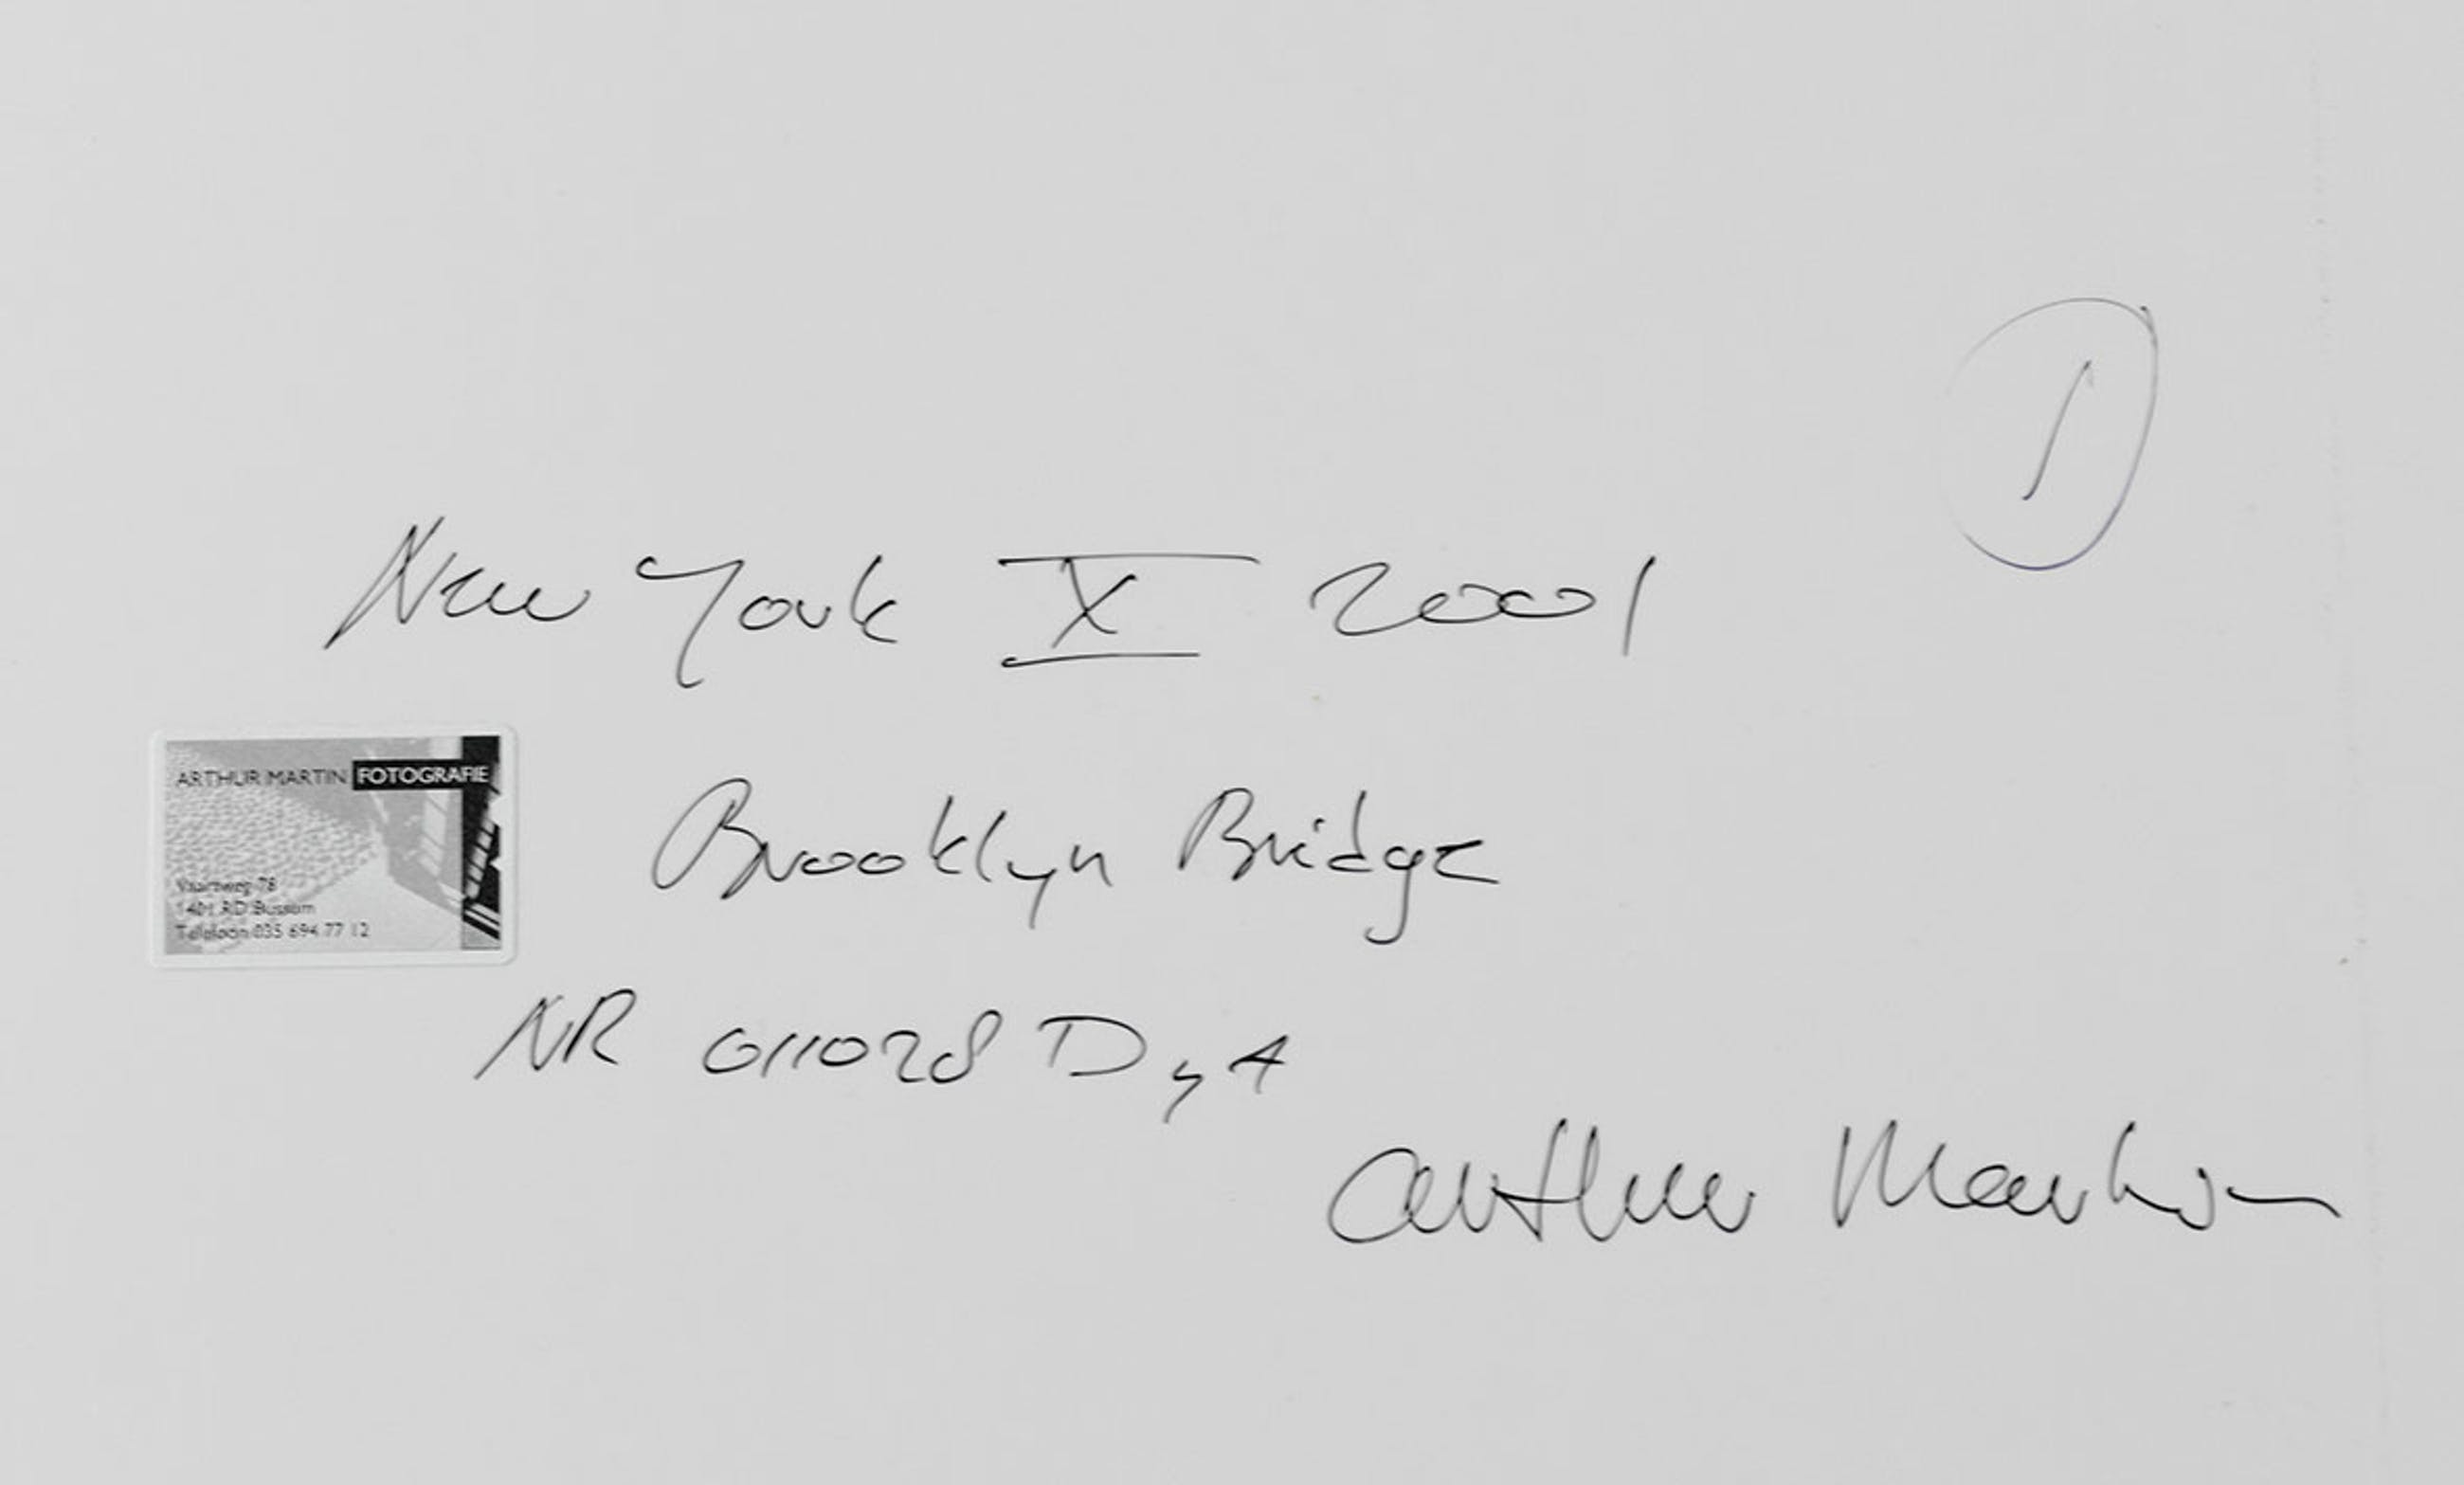 1
New York X 2001
ARTHUR MARTIN FOTOGRAFIE
Vaartweg 78
1401 RD Bussum
Telefoon 035 694 77 12
Brooklyn Bridge
NR 011028 D
Arthur Martin